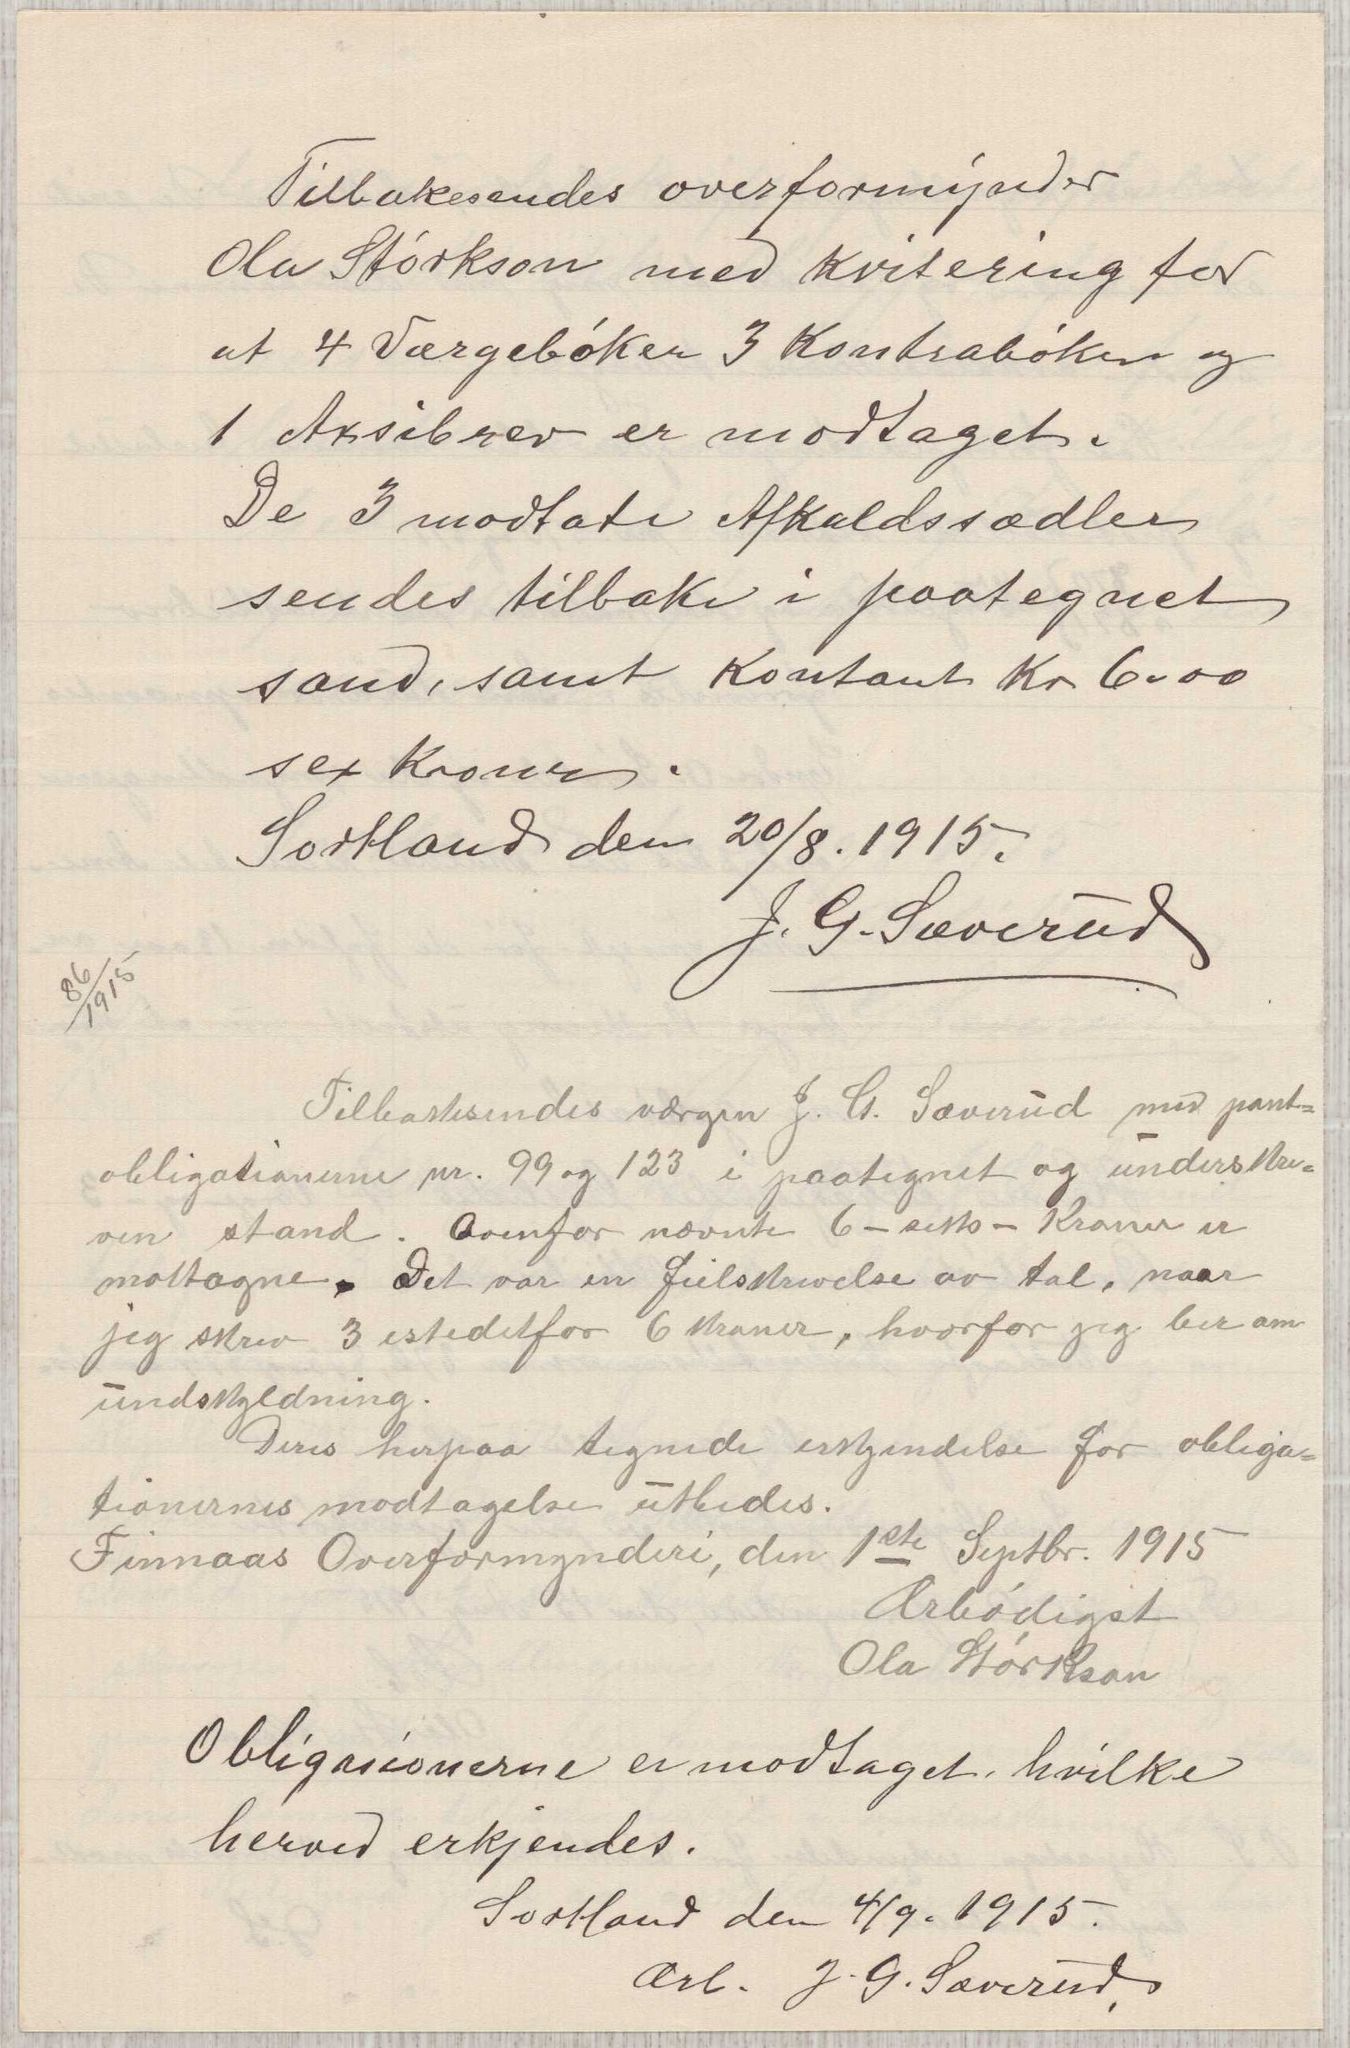 Tilbakesendes overformynder
Ola Størkson med kvitering for
at 4 Værgebøker 3 Kontrabøker og
1 Aksibrev er modtaget.
De 3 modtate Afkaldssædler
sendes tilbake i paategnet
sand, samt Kontant Kr 6.00
sex Kroner.
Sortland den 20/8. 1915.
J. G. Sæverud
86/1915
Tilbakesendes værgen J. G. Sæverud med pant=
obligationerne nr. 99 og 123 i paategnet og underskre=
ven stand. Ovenfor nævnte 6 - seks - Kroner er
mottagne. Det var en feilskrivelse av tal, naar
jeg skrev 3 istedetfor 6 kroner, hvorfor jeg ber om
undskyldning.
Deres herpaa tegnede erkjendelse for obliga=
tionernes modtagelse utbedes.
Finnaas Overformynderi, den 1ste Septbr. 1915
Ærbødigst
Ola Størkson
Obligasionerne er modtaget, hvilke
herved erkjendes.
Sortland den 4/9. 1915.
Ærb. J. G. Sæverud.